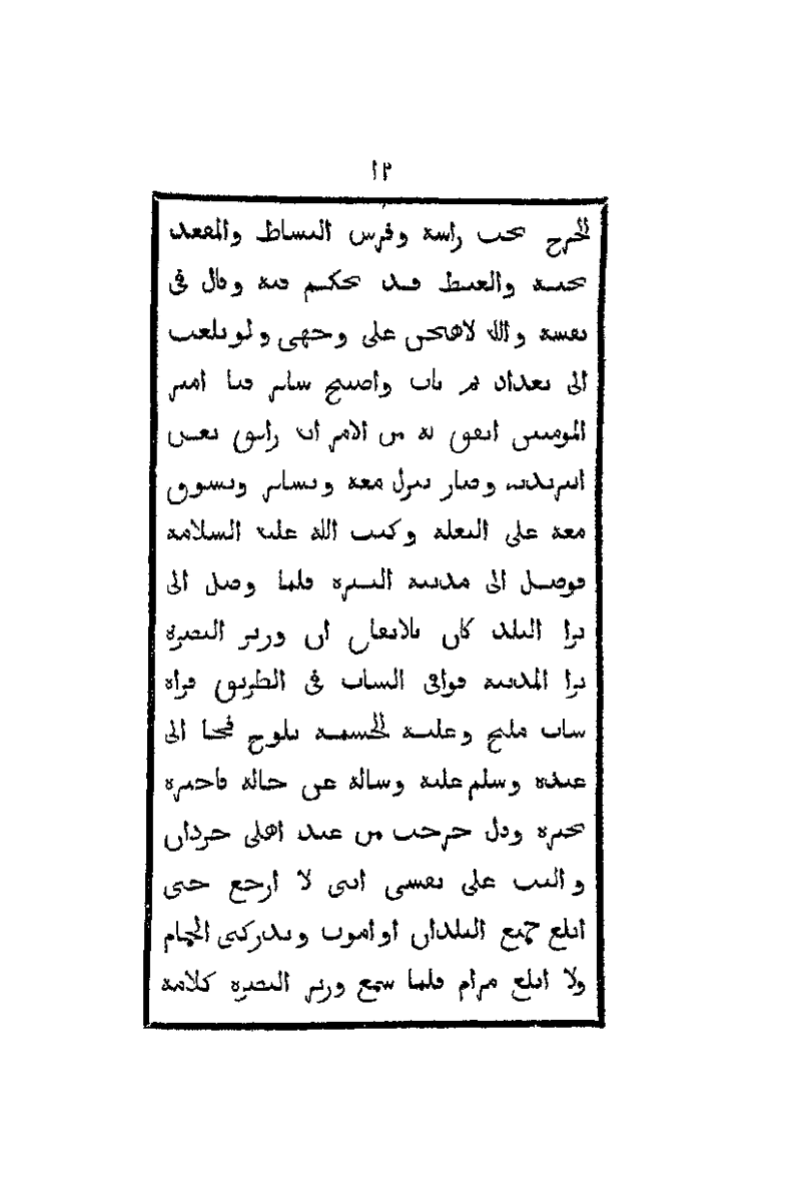 ١٢
الخرج تحت راسه وفرش البساط والمقعد
تحته والغيظ قد تحكم فيه وقال في
نفسه والله لاهجن على وجهي ولو بلغت
الى بغداد ثم بات واصبح ساير فيا امير
المومنين اتفق له من الامر انه رافق بعض
البريديه وصار ينزل معه ويساير ويسوق
معه على البغله وكتب الله عليه السلامه
فوصل الى مدينه البصره فلما وصل الى
برا البلد كان بالاتفاق ان وزير البصره
برا المدينه فوافى الشاب في الطريق فراه
شاب مليح وعليه الحشمه تلوح فجا الى
عنده وسلم عليه وساله عن حاله فاخبره
بخبره وقال خرجت من عند اهلى حردان
واليت على نفسى اننى لا ارجع حتى
ابلغ جميع البلدان او اموت ويدركنى الحمام
ولا ابلغ مرام فلما سمع وزير البصره كلامه